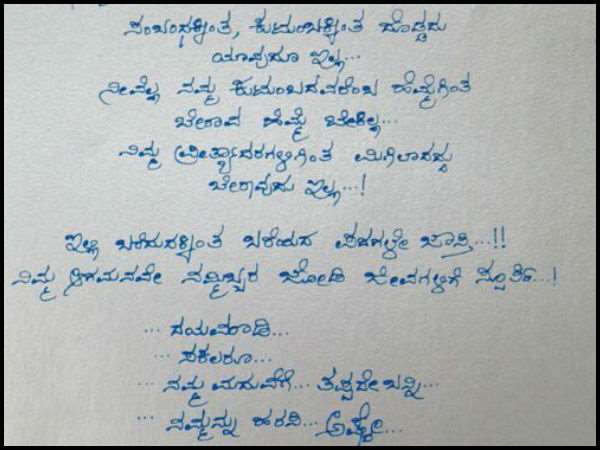 ಸಂಬಂಧಕ್ಕಿಂತ, ಕುಟುಂಬಕ್ಕಿಂತ ದೊಡ್ಡದು
ಯಾವುದೂ ಇಲ್ಲ...
ನೀವೆಲ್ಲ ನಮ್ಮ ಕುಟುಂಬದವರೆಂಬ ಹೆಮ್ಮೆಗಿಂತ
ಬೇರಾವ ಹೆಮ್ಮೆ ಬೇಕಿಲ್ಲ...
ನಿಮ್ಮ ಪ್ರೀತ್ಯಾದರಗಳಿಗಿಂತ ಮಿಗಿಲಾದದ್ದು
ಬೇರಾವುದು ಇಲ್ಲ...!
ಇಲ್ಲಿ ಬರೆದುದಕ್ಕಿಂತ ಬರೆಯದ ಪದಗಳೇ ಜಾಸ್ತಿ...!!
ನಿಮ್ಮ ಆಗಮನವೇ ನಮ್ಮಿಬ್ಬರ ಜೋಡಿ ಜೀವಗಳಿಗೆ ಸ್ಪೂರ್ತಿ...!
... ದಯಮಾಡಿ...
... ಸಕಲರೂ...
... ನಮ್ಮ ಮದುವೆಗೆ... ತಪ್ಪದೇ ಬನ್ನಿ...
... ನಮ್ಮನ್ನು ಹರಸಿ... ಅಷ್ಟೇ...